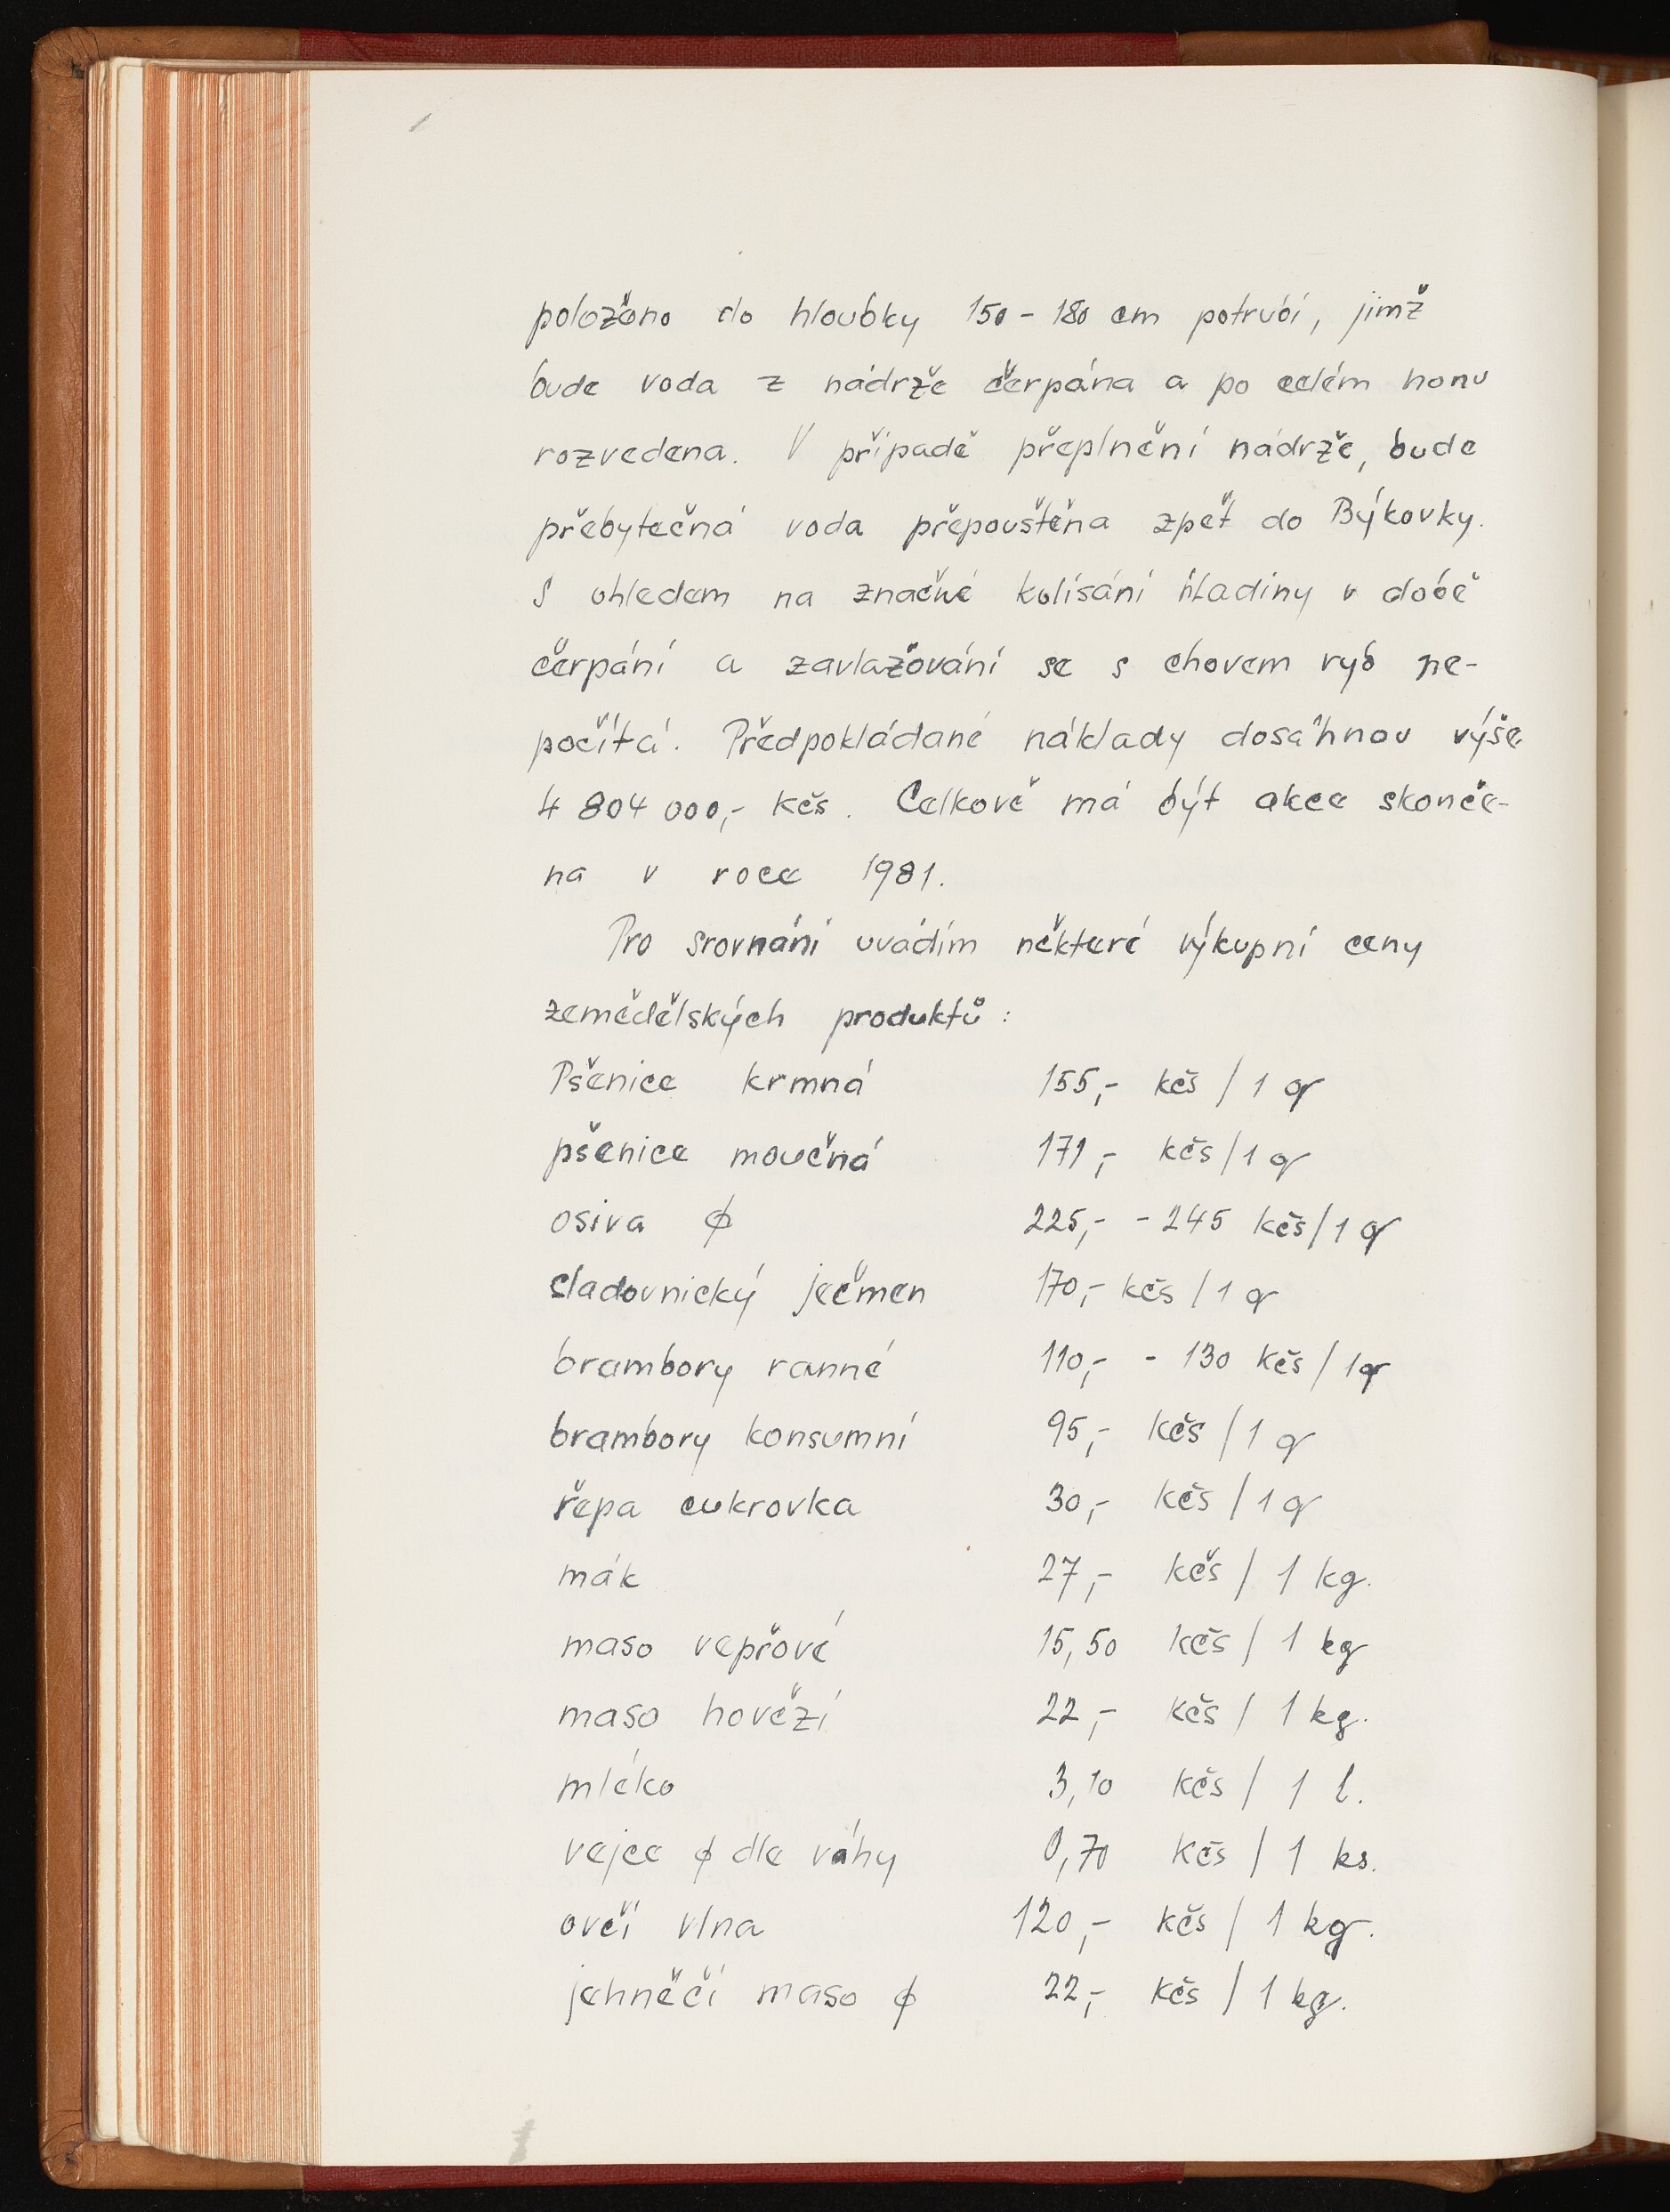 položeno do hloubky 150 - 180 cm potrubí, jímž
bude voda z nádrže čerpána a po celém honu
rozvedena. V případě přeplnění nádrže, bude
přebytečná voda přepouštěna zpět do Býkovky.
S ohledem na značné kolísání hladiny v době
čerpání a zavlažování se s chovem ryb ne-
počítá. Předpokládané náklady dosáhnou výše
4 804 000,- Kčs. Celkově má být akce skonče-
na v roce 1981.
Pro srovnání uvádím některé výkupní ceny
zemědělských produktů :
Pšenice krmná 155,- Kčs / 1 q
pšenice moučná 171,- Kčs / 1 q
osiva ϕ 225,- - 245 Kčs / 1 q
sladovnický ječmen 170,- Kčs / 1 q
brambory ranné 110,- - 130 Kčs / 1q
brambory konsumní 95,- Kčs / 1 q
řepa cukrovka 30,- Kčs / 1 q
mák 27,- Kčs / 1 kg.
maso vepřové 15,50 Kčs / 1 kg
maso hovězí 22,- Kčs / 1 kg.
mléko 3,10 Kčs / 1 l.
vejce ϕ dle váhy 0,70 Kčs / 1 ks.
ovčí vlna 120,- Kčs / 1 kg.
jehněčí maso ϕ 22,- Kčs / 1 kg.